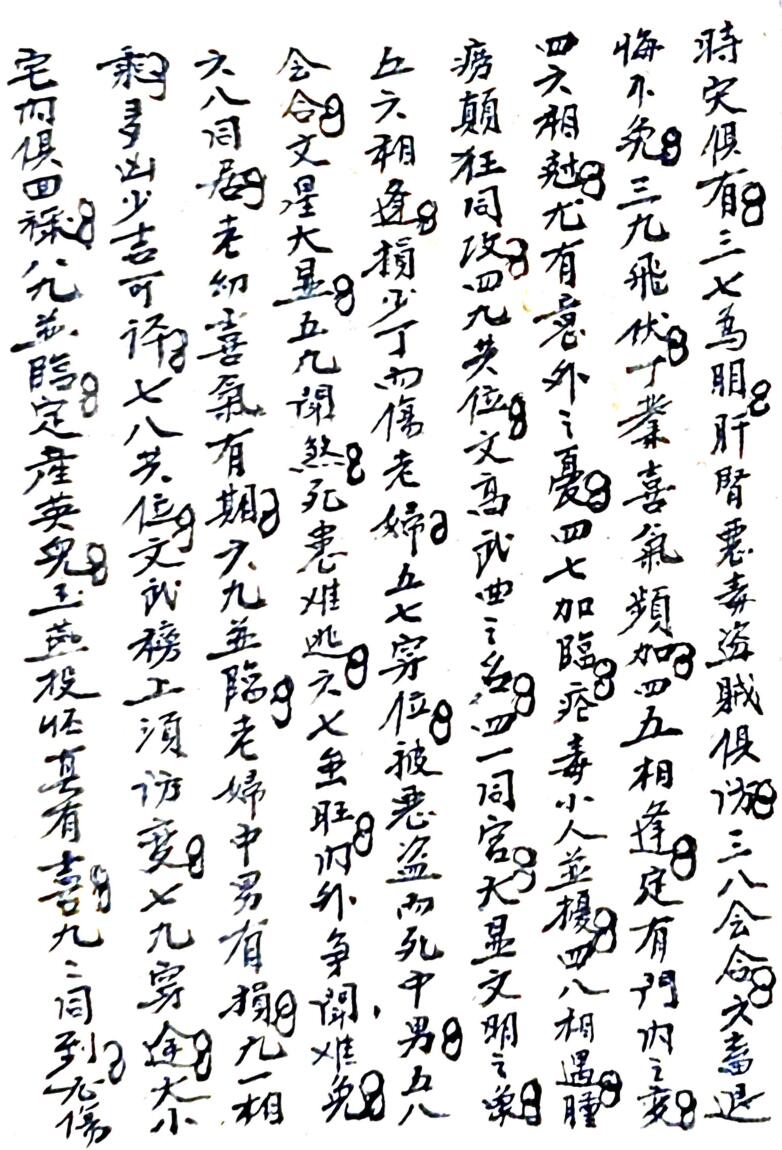 時灾俱有三七為朋肝腎惡毒盗賊俱访三八会合六畜退
悔不免三九飛伏丁業喜氣頻加四五相逢定有門内之変
四六相尅尤有意外之憂四七加臨疮毒小人並擾四八相遇腫
痨顛狂同攻四九共位文高武曲之名四一同宫大显文明之
五六相逢損少丁而傷老婦五七穿位被惡盗而死中男五八
会合文星大显五九開煞死患难逃六七重旺内外争開难免
六八同居老幼喜氣有期六九並臨老婦中男有損九一相
剩多凶少吉可评七八共位文武榜上须访変七九穿途大小
宅内俱回禄八九並臨定産英兒玉燕投怀真有喜九二同到尤傷